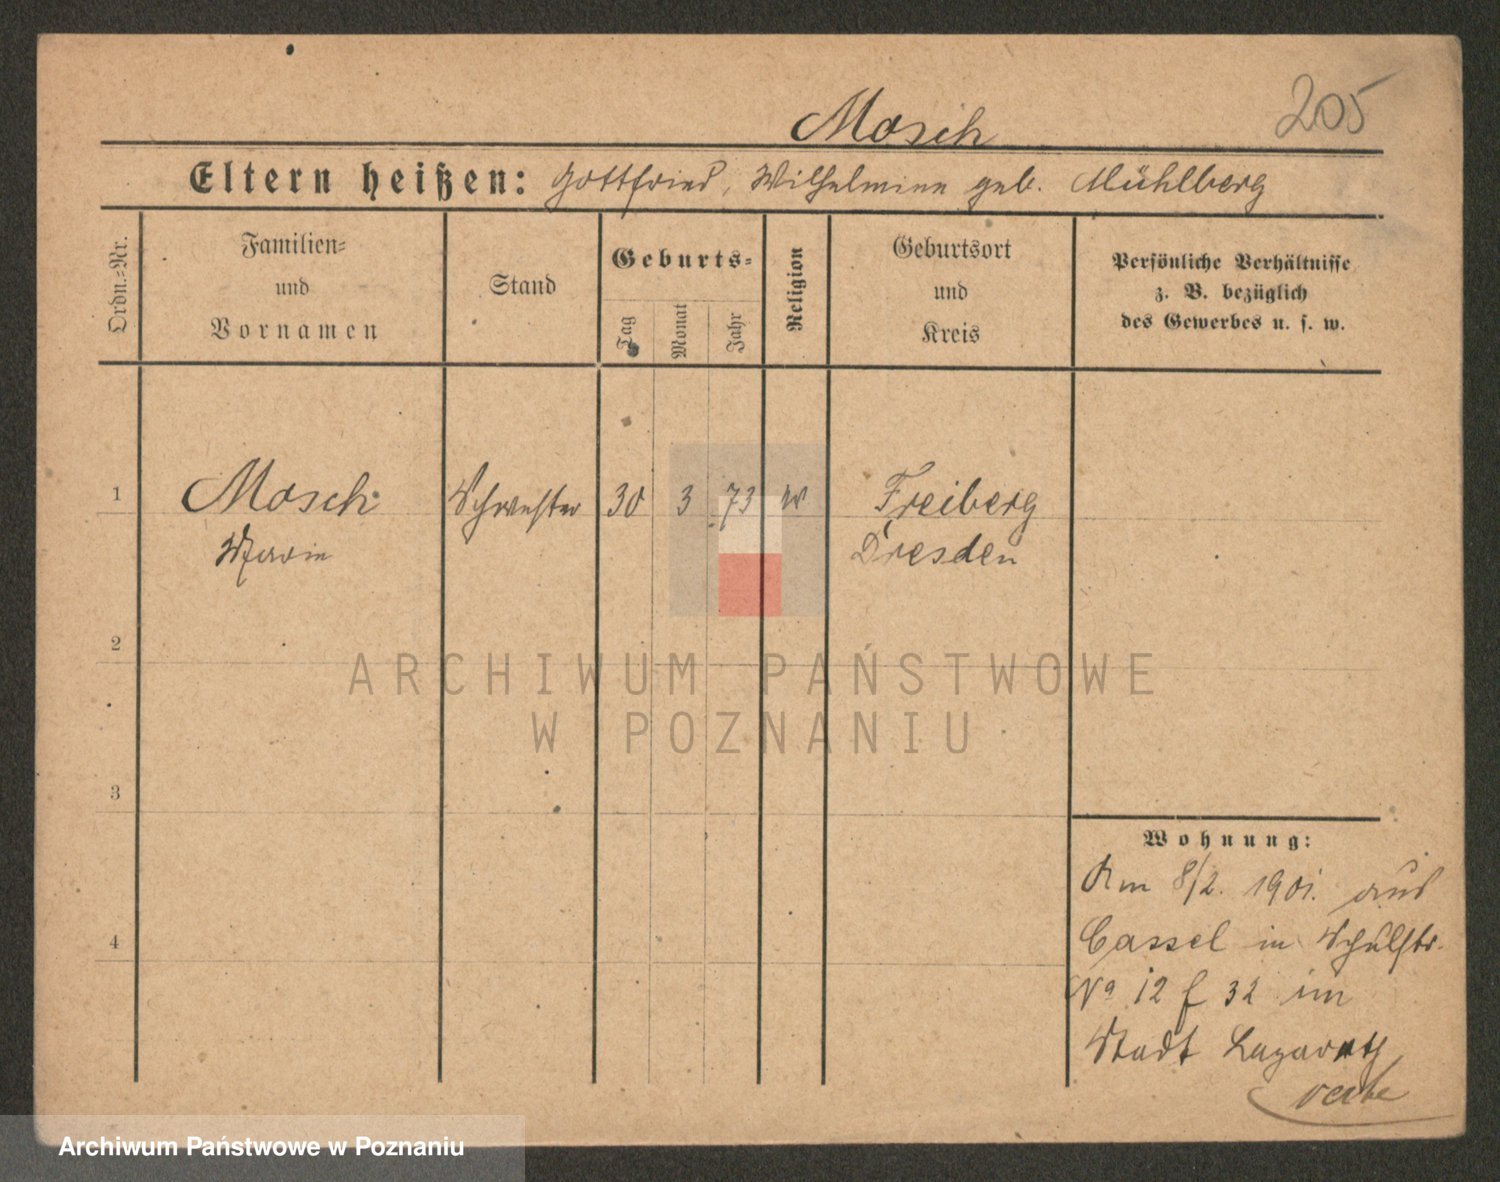 205
Mosch
Eltern heißen: Gottfried, Wilhelmine geb. Mühlberg
Ordn.=Nr.
Familien=
und
Vornamen
Stand
Geburts=
Tag
Monat
Jahr
Religion
Geburtsort
und
Kreis
Persönliche Verhältnisse
z. B. bezüglich
des Gewerbes u. s. w.
1 Mosch Schwester 30 3 73 Freiberg
Marie Dresden
2
ARCHIWUM PAŃSTWOWE
W POZNANIU
3
Wohnung:
Am 8/2. 1901. aus
Cassel in Schulstr.
No 12 f 32 im
4
Stadt Lazareth
Archiwum Państwowe w Poznaniu